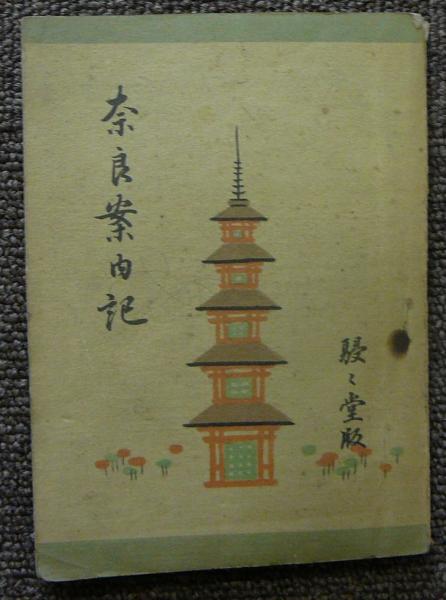 奈良案内記
駸々堂版